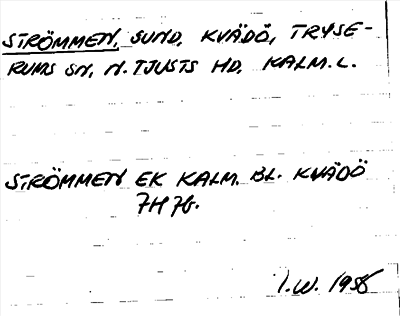 STRÖMMEN, SUND, KVÄDÖ, TRYSE-
RUMS SN, N. TJUSTS HD, KALM. L.
STRÖMMEN EK KALM. BL. KVÄDÖ
7H 7G.
I.W. 1956